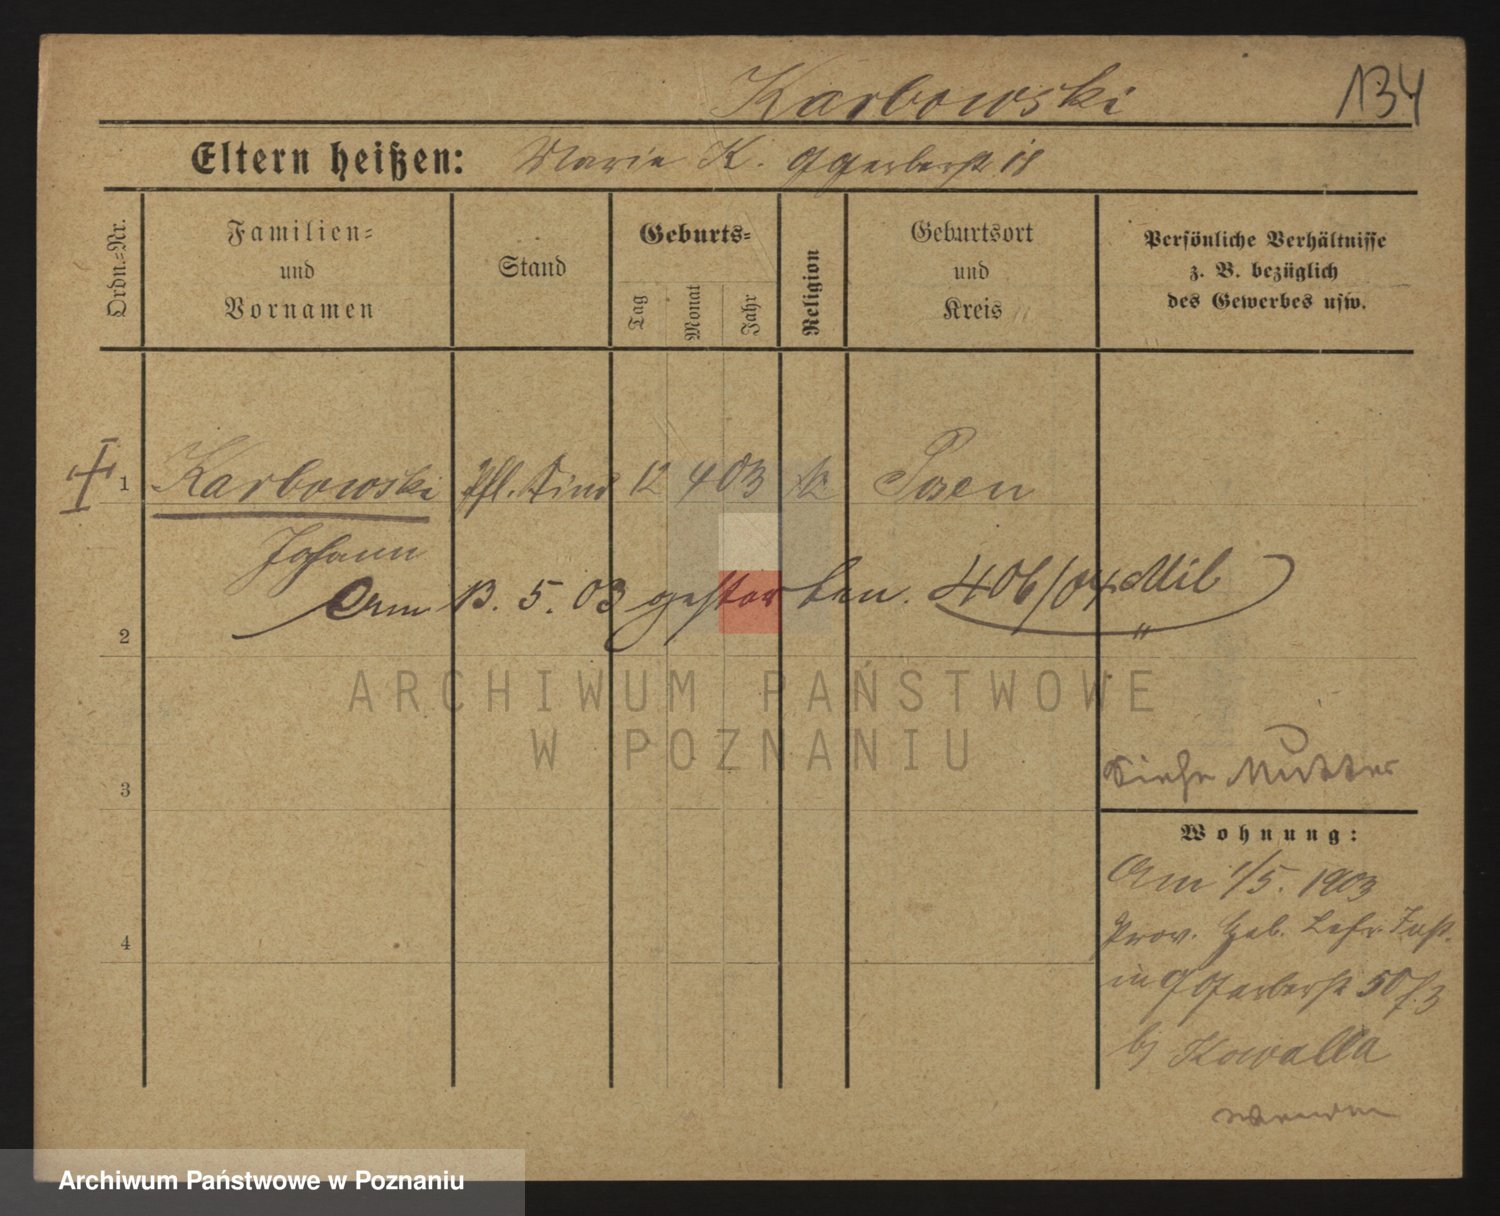 Karbowski 134
Eltern heißen: Marie K. Ggerberstr. 18
Ordn.-Nr.
Familien-
und
Vornamen
Stand
Geburts-
Tag
Monat
Jahr
Religion
Geburtsort
und
Kreis
Persönliche Verhältnisse
z. B. bezüglich
des Gewerbes usw.
1 Karbowski Pfl. Kind 12 4 03 k Posen
Johann
Am 13. 5. 03 gestorben. 406/04 Mil
2
ARCHIWUM PAŃSTWOWE
W POZNANIU
3
Siehe Mutter
Wohnung:
Am 1/5. 1903
Prov. Heb. Lehr. Inst.
4
in Ggerberstr 50
b/ Kowalla
wenden
Archiwum Państwowe w Poznaniu